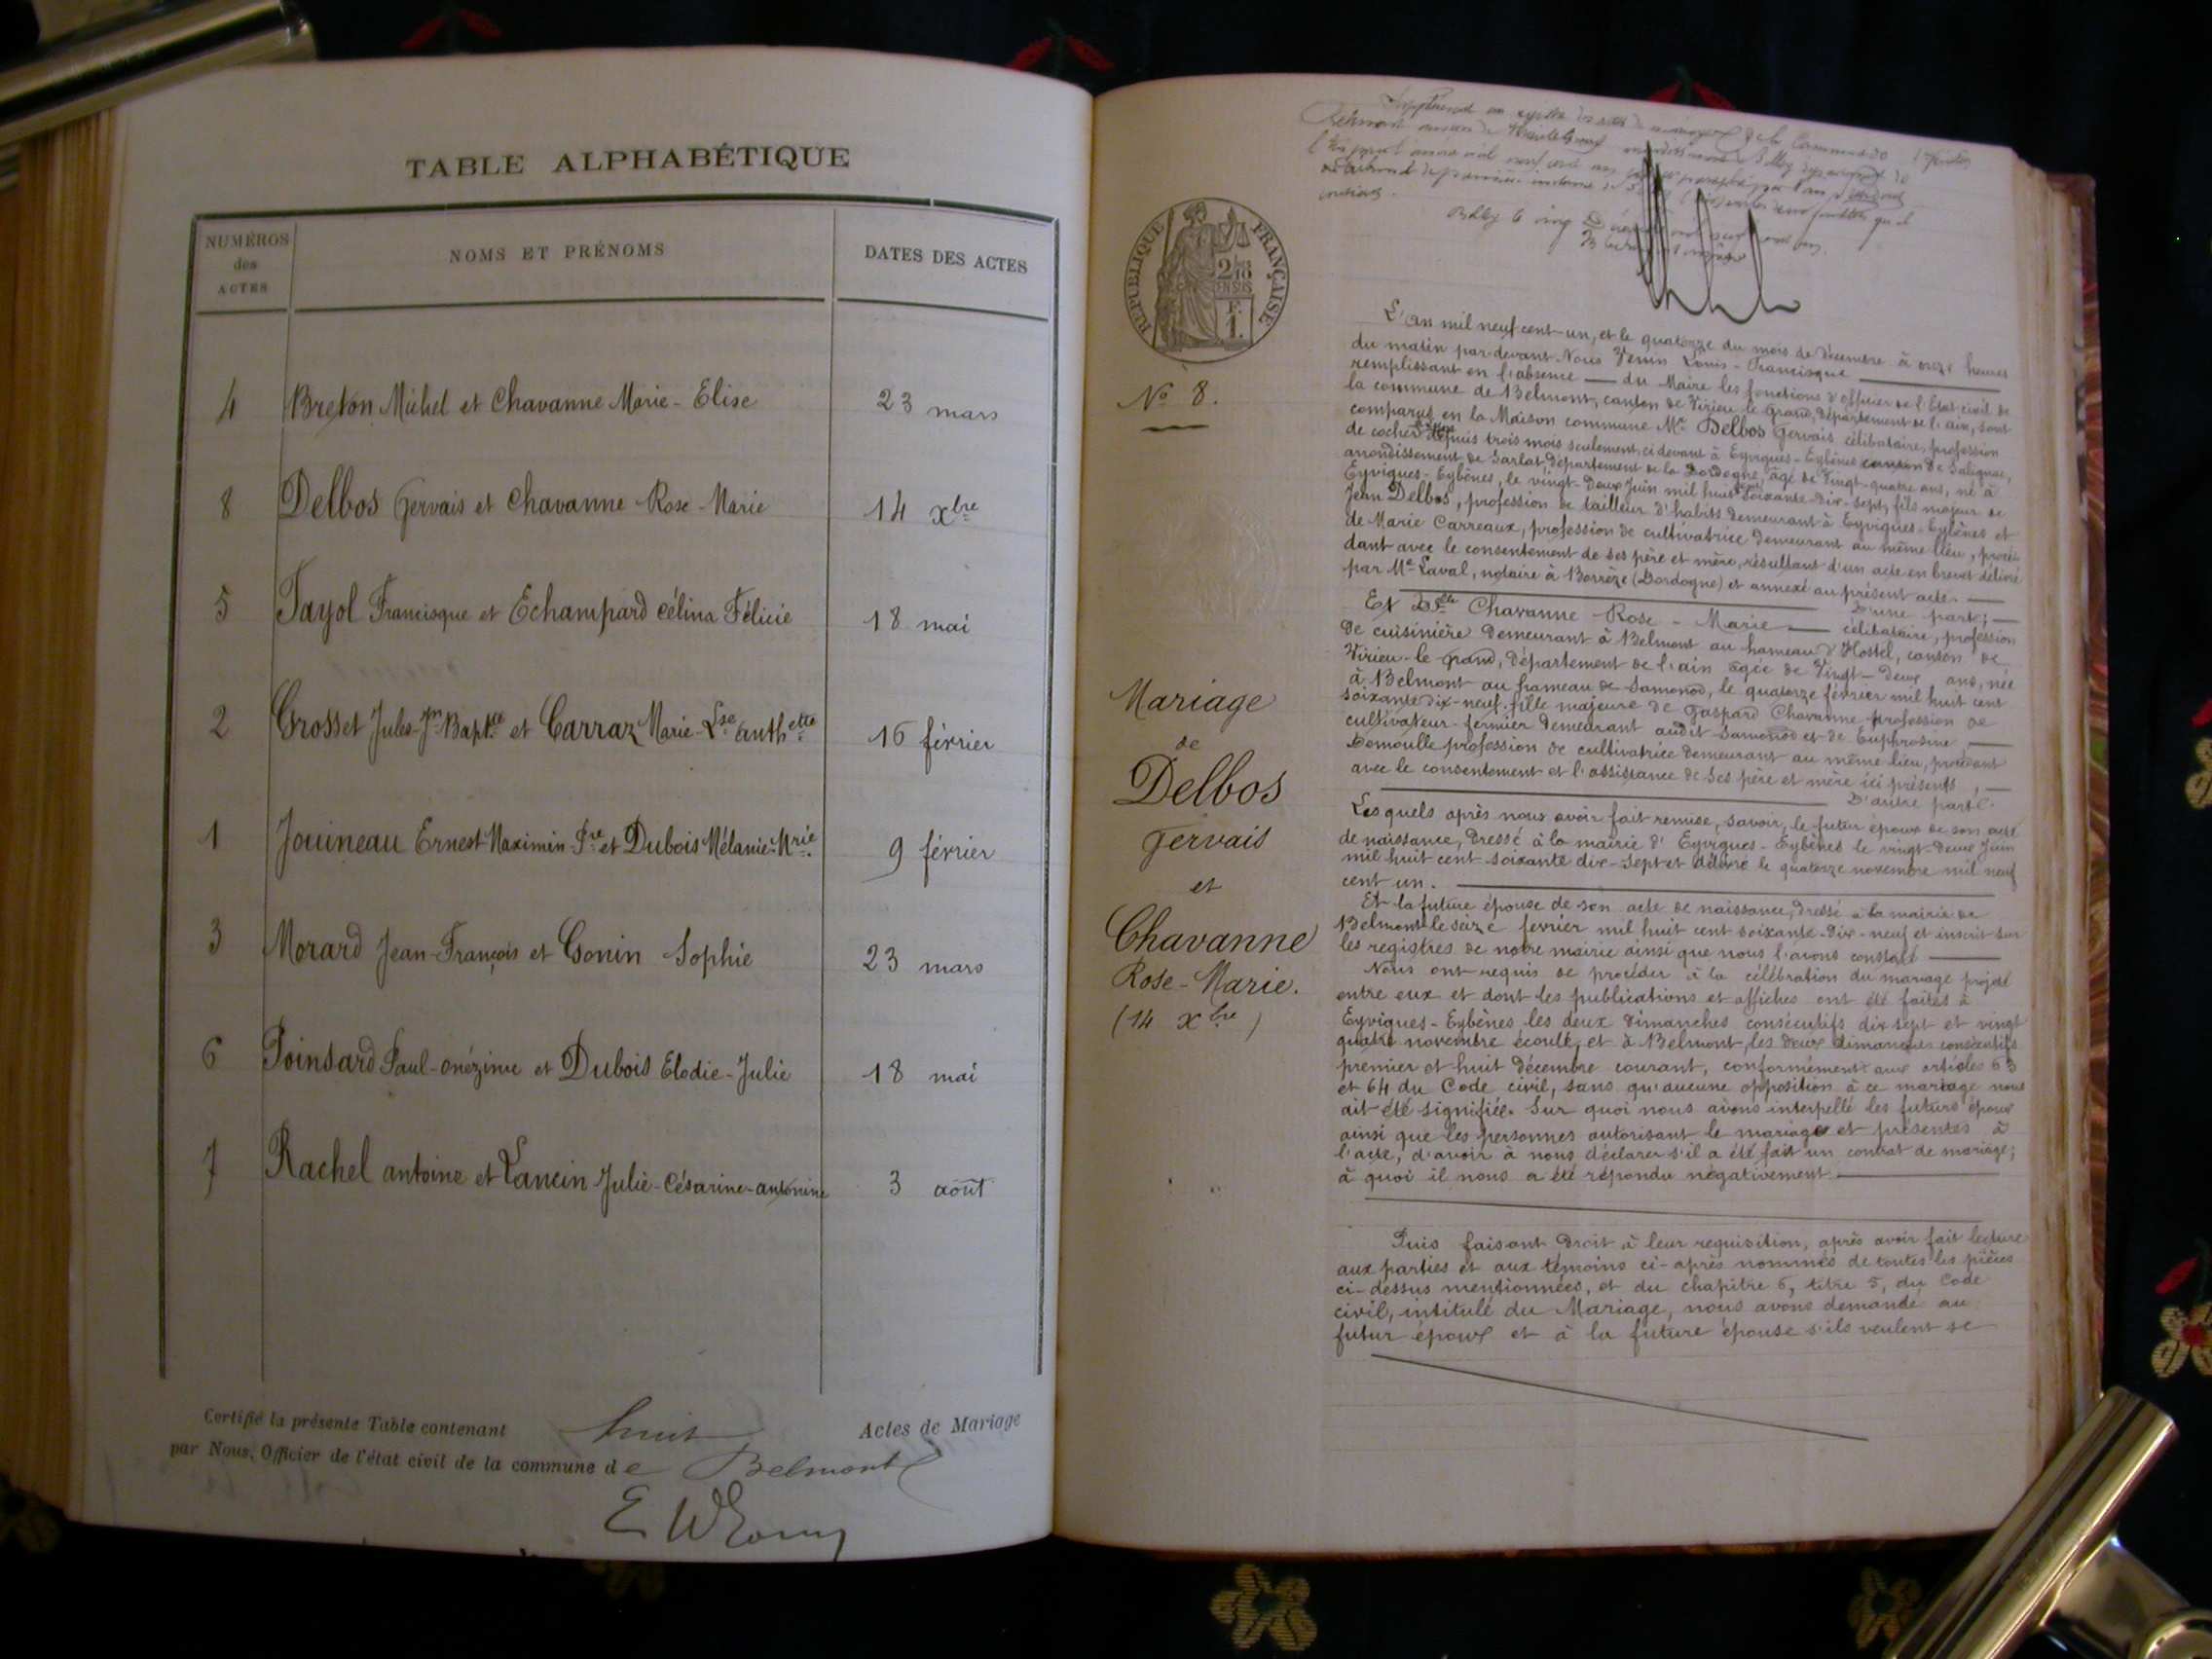 TABLE ALPHABÉTIQUE
NUMÉROS
des
ACTES
NOMS ET PRÉNOMS
DATES DES ACTES
4 Breton Michel et Chavanne Marie-Elise 23 mars
8 Delbos Gervais et Chavanne Rose-Marie 14 Xbre
5 Tayol Francisque et Echampard Célina Félicie 18 mai
2 Grosset Jules-Jn Bapte et Carraz Marie-Lse Anthette 16 février
1 Jouineau Ernest Maximin Pre et Dubois Mélanie-Mrie 9 février
3 Morard Jean-François et Gonin Sophie 23 mars
6 Poinsard Paul-Onézime et Dubois Elodie-Julie 18 mai
7 Rachel Antoine et Lancin Julie-Césarine-Antonine 3 août
Certifié la présente Table contenant huit Actes de Mariage
par Nous, Officier de l'état civil de la commune de Belmont
RÉPUBLIQUE FRANÇAISE
2/10
EN SUS
F.
1.
No 8.
Mariage
de
Delbos
Gervais
et
Chavanne
Rose-Marie.
(14 Xbre)
L'an mil neuf cent-un, et le quatorze du mois de Décembre à onze heures
du matin par-devant Nous Venin Louis-Francisque
remplissant en l'absence du Maire les fonctions d'officier de l'Etat-civil de
la commune de Belmont, canton de Virieu-le-Grand, Département de l'ain, sont
comparus en la Maison commune Mr Delbos Gervais célibataire, profession
de cocher depuis trois mois seulement, ci devant à Eyvigues-Eybènes canton de Salignac,
arrondissement de Sarlat Département de la Dordogne, âgé de Vingt-quatre ans, né à
Eyvigues-Eybènes, le vingt-deux Juin mil huit cent soixante-Dix-sept, fils majeur de
Jean Delbos, profession de tailleur d'habits Demeurant à Eyvigues-Eybènes et
de Marie Carreaux, profession de cultivatrice Demeurant au même lieu, procé-
dant avec le consentement de ses père et mère, résultant d'un acte en brevet délivré
par Me Laval, notaire à Borrèze (Dordogne) et annexé au présent acte.
D'une part;
Et Dlle Chavanne Rose-Marie célibataire, profession
de cuisinière Demeurant à Belmont au hameau d'Hostel, canton de
Virieu-le-grand, département de l'ain âgée de Vingt-Deux ans, née
à Belmont au hameau de Samonod, le quatorze février mil huit cent
soixante dix-neuf, fille majeure de Gaspard Chavanne profession de
cultivateur-fermier demeurant audit Samonod et de Euphrosine
Demoulle profession de cultivatrice Demeurant au même lieu, procédant
avec le consentement et l'assistance de ses père et mère ici présents,
D'autre part.
Lesquels après nous avoir fait remise, savoir, le futur époux de son acte
de naissance, Dressé à la mairie d'Eyvigues-Eybènes le vingt-deux Juin
mil huit cent soixante dix-sept et délivré le quatorze novembre mil neuf
cent un.
Et la future épouse de son acte de naissance, Dressé à la mairie de
Belmont le seize février mil huit cent soixante-Dix-neuf et inscrit sur
les registres de notre mairie ainsi que nous l'avons constaté
Nous ont requis de procéder à la célébration du mariage projeté
entre eux et dont les publications et affiches ont été faites à
Eyvigues-Eybènes les deux Dimanches consécutifs dix sept et vingt
quatre novembre écoulé, et à Belmont, les Deux dimanches consécutifs
premier et huit Décembre courant, conformément aux articles 63
et 64 du Code civil, sans qu'aucune opposition à ce mariage nous
ait été signifiée. Sur quoi nous avons interpellé les futurs époux
ainsi que les personnes autorisant le mariage et présentes à
l'acte, d'avoir à nous déclarer s'il a été fait un contrat de mariage;
à quoi il nous a été répondu négativement
Puis faisant Droit à leur requisition, après avoir fait lecture
aux parties et aux témoins ci-après nommés de toutes les pièces
ci-dessus mentionnées, et du chapitre 6, titre 5, du Code
civil, intitulé du Mariage, nous avons demandé au
futur époux et à la future épouse s'ils veulent se